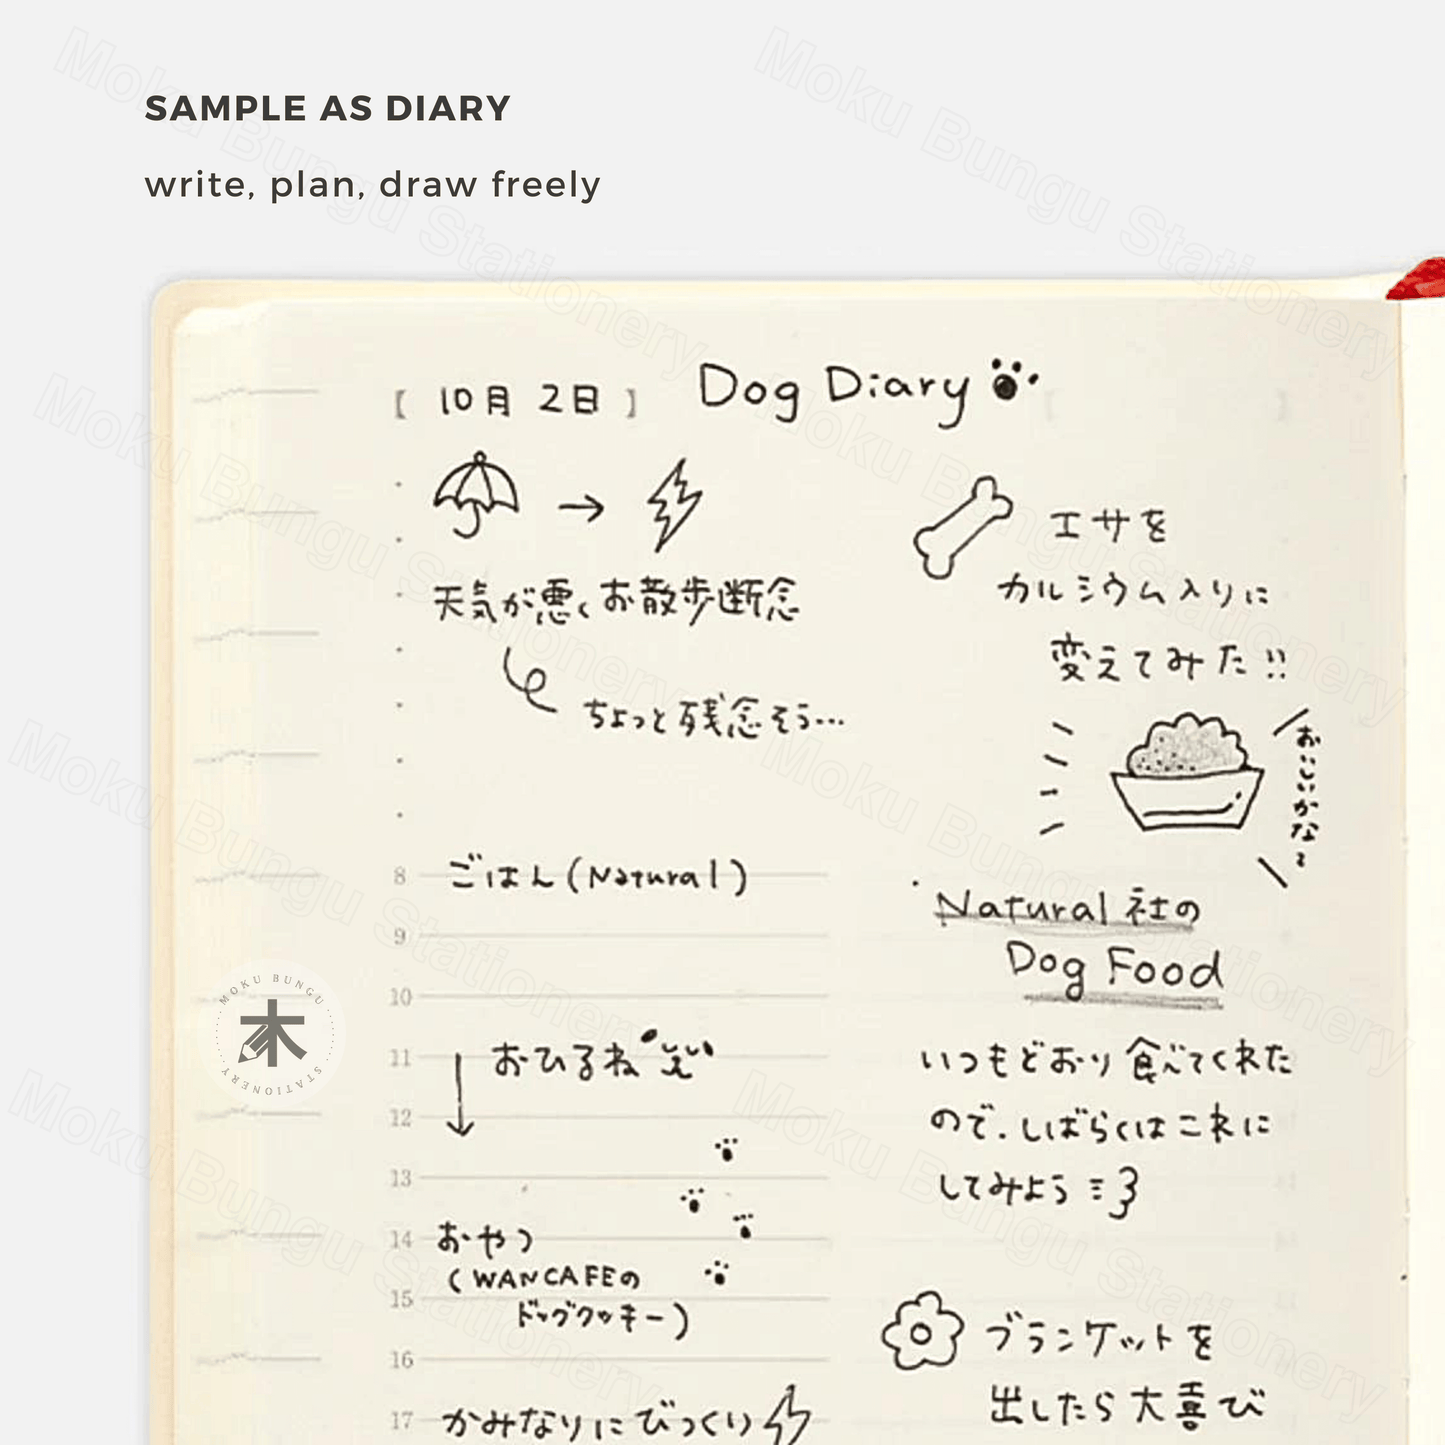 SAMPLE AS DIARY
write, plan, draw freely
[ 10月 2日 ]
Dog Diary
天気が悪くお散歩断念
ちょっと残念そう…
8 ごはん(Natural)
9
10
11 おひるね
12
13
14 おやつ
(WANCAFEの
15 ドッグクッキー)
16
17 かみなりにびっくり
エサを
カルシウム入りに
変えてみた!!
おいしいかな?
Natural 社の
Dog Food
いつもどおり食べてくれた
ので、しばらくはこれに
してみよう
ブランケットを
出したら大喜び
MOKU BUNGU
木
STATIONERY
Moku Bungu Stationery
Moku Bungu Stationery
Moku Bungu Stationery
Moku Bungu Stationery
Moku Bungu Stationery
Moku Bungu Stationery
Moku Bungu Stationery
Moku Bungu Stationery